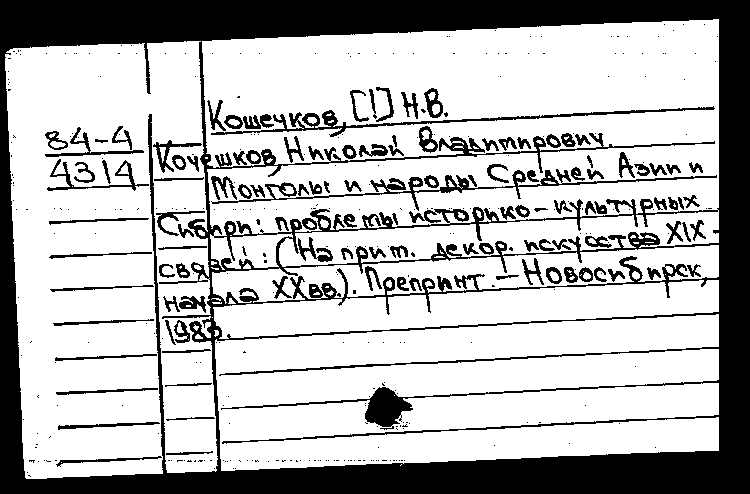 Кошечков, [!] Н.В.
84-4
4314
Кочешков, Николай Владимирович.
Монголы и народы Средней Азии и
Сибири: проблемы историко-культурных
связей: (На прим. декор. искусства XIX -
начала XX вв.). Препринт. - Новосибирск,
1983.